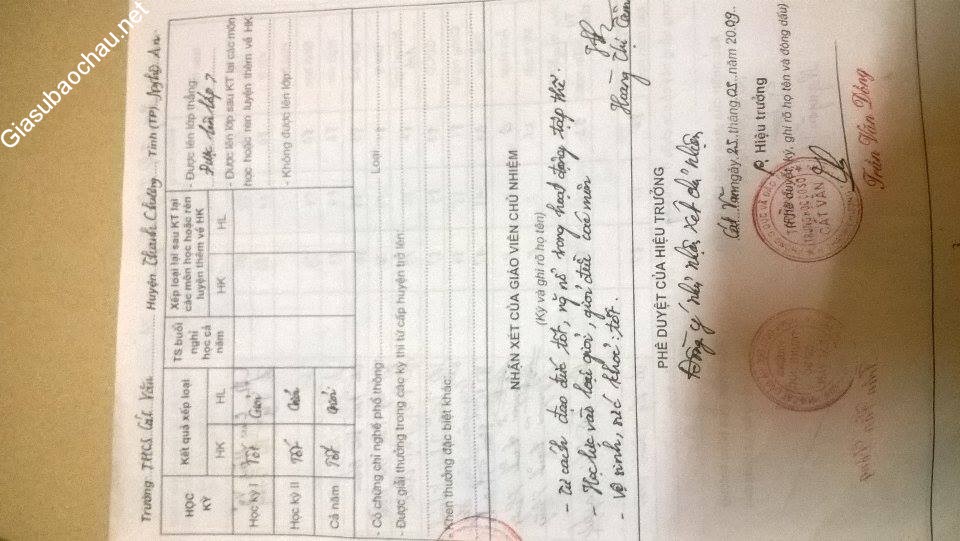 Giasubaochau.net
Trường THCS Cát Văn Huyện Thanh Chương Tỉnh (TP) Nghệ An
HỌC KỲ
Kết quả xếp loại
TS buổi nghỉ học cả năm
Xếp loại lại sau KT lại các môn học hoặc rèn luyện thêm về HK
HK HL HK HL
Học kỳ I Tốt Giỏi
Học kỳ II Tốt Giỏi
Cả năm Tốt Giỏi
- Được lên lớp thẳng:
Được lên lớp 7
- Được lên lớp sau KT lại các môn
học hoặc rèn luyện thêm về HK
- Không được lên lớp:
- Có chứng chỉ nghề phổ thông: Loại
- Được giải thưởng trong các kỳ thi từ cấp huyện trở lên:
- Khen thưởng đặc biệt khác:
NHẬN XÉT CỦA GIÁO VIÊN CHỦ NHIỆM
(Ký và ghi rõ họ tên)
- Tư cách đạo đức tốt, năng nổ trong hoạt động tập thể.
- Học lực vào loại giỏi, giỏi đều các môn
- Vệ sinh, sức khoẻ: tốt.
Hoàng Thị Tâm
PHÊ DUYỆT CỦA HIỆU TRƯỞNG
Đồng ý như nhận xét đã nhận
Cát Văn ngày 25 tháng 05 năm 2009
P. Hiệu trưởng
ký, ghi rõ họ tên và đóng dấu)
TRUNG HỌC CƠ SỞ
CÁT VĂN
Trần Văn Dóng